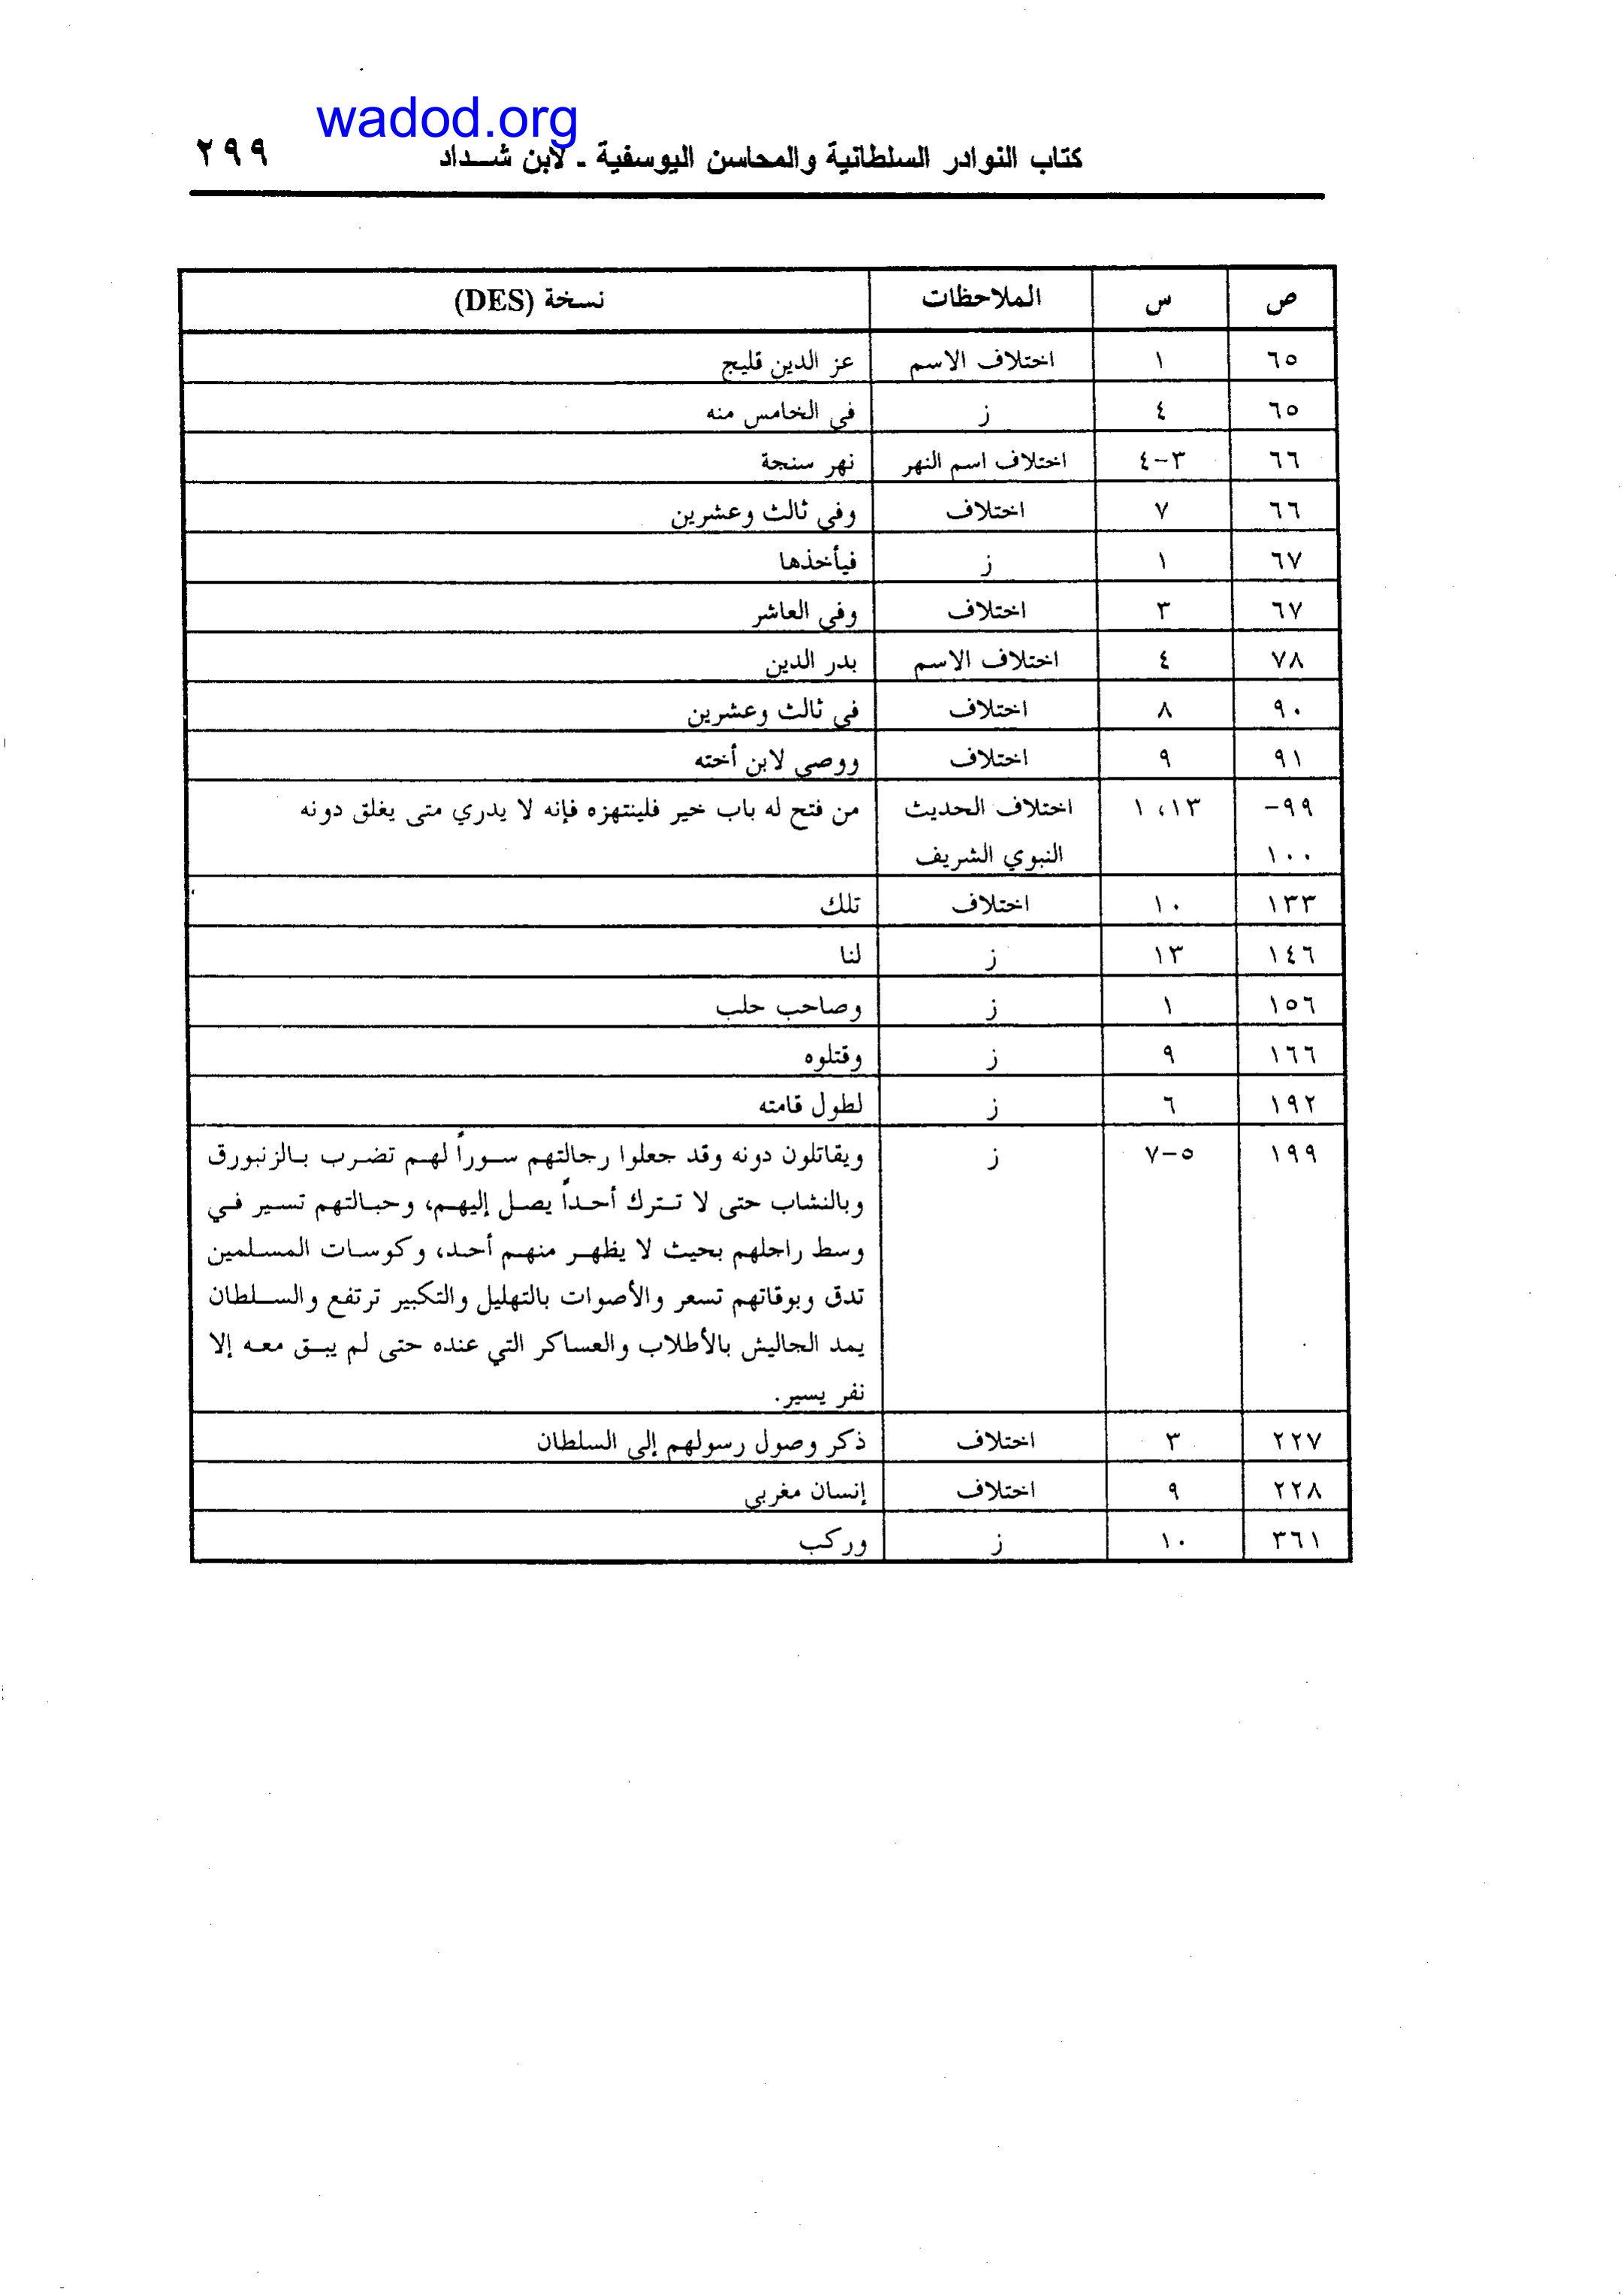 wadod.org
كتاب النوادر السلطانية والمحاسن اليوسفية ـ لابن شداد ٢٩٩
ص س الملاحظات نسخة (DES)
٦٥ ١ اختلاف الاسم عز الدين قليج
٦٥ ٤ ز في الخامس منه
٦٦ ٣-٤ اختلاف اسم النهر نهر سنجة
٦٦ ٧ اختلاف وفي ثالث وعشرين
٦٧ ١ ز فيأخذها
٦٧ ٣ اختلاف وفي العاشر
٧٨ ٤ اختلاف الاسم بدر الدين
٩٠ ٨ اختلاف في ثالث وعشرين
٩١ ٩ اختلاف ووصي لابن أخته
٩٩- ١٣، ١ اختلاف الحديث من فتح له باب خير فلينتهزه فإنه لا يدري متى يغلق دونه
١٠٠ النبوي الشريف
١٣٣ ١٠ اختلاف تلك
١٤٦ ١٣ ز لنا
١٥٦ ١ ز وصاحب حلب
١٦٦ ٩ ز وقتلوه
١٩٢ ٦ ز لطول قامته
١٩٩ ٥-٧ ز ويقاتلون دونه وقد جعلوا رجالتهم سوراً لهم تضرب بالزنبورق
وبالنشاب حتى لا تترك أحداً يصل إليهم، وحبالتهم تسير في
وسط راجلهم بحيث لا يظهر منهم أحد، وكوسات المسلمين
تدق وبوقاتهم تسعر والأصوات بالتهليل والتكبير ترتفع والسلطان
يمد الجاليش بالأطلاب والعساكر التي عنده حتى لم يبق معه إلا
نفر يسير.
٢٢٧ ٣ اختلاف ذكر وصول رسولهم إلى السلطان
٢٢٨ ٩ اختلاف إنسان مغربي
٣٦١ ١٠ ز وركب